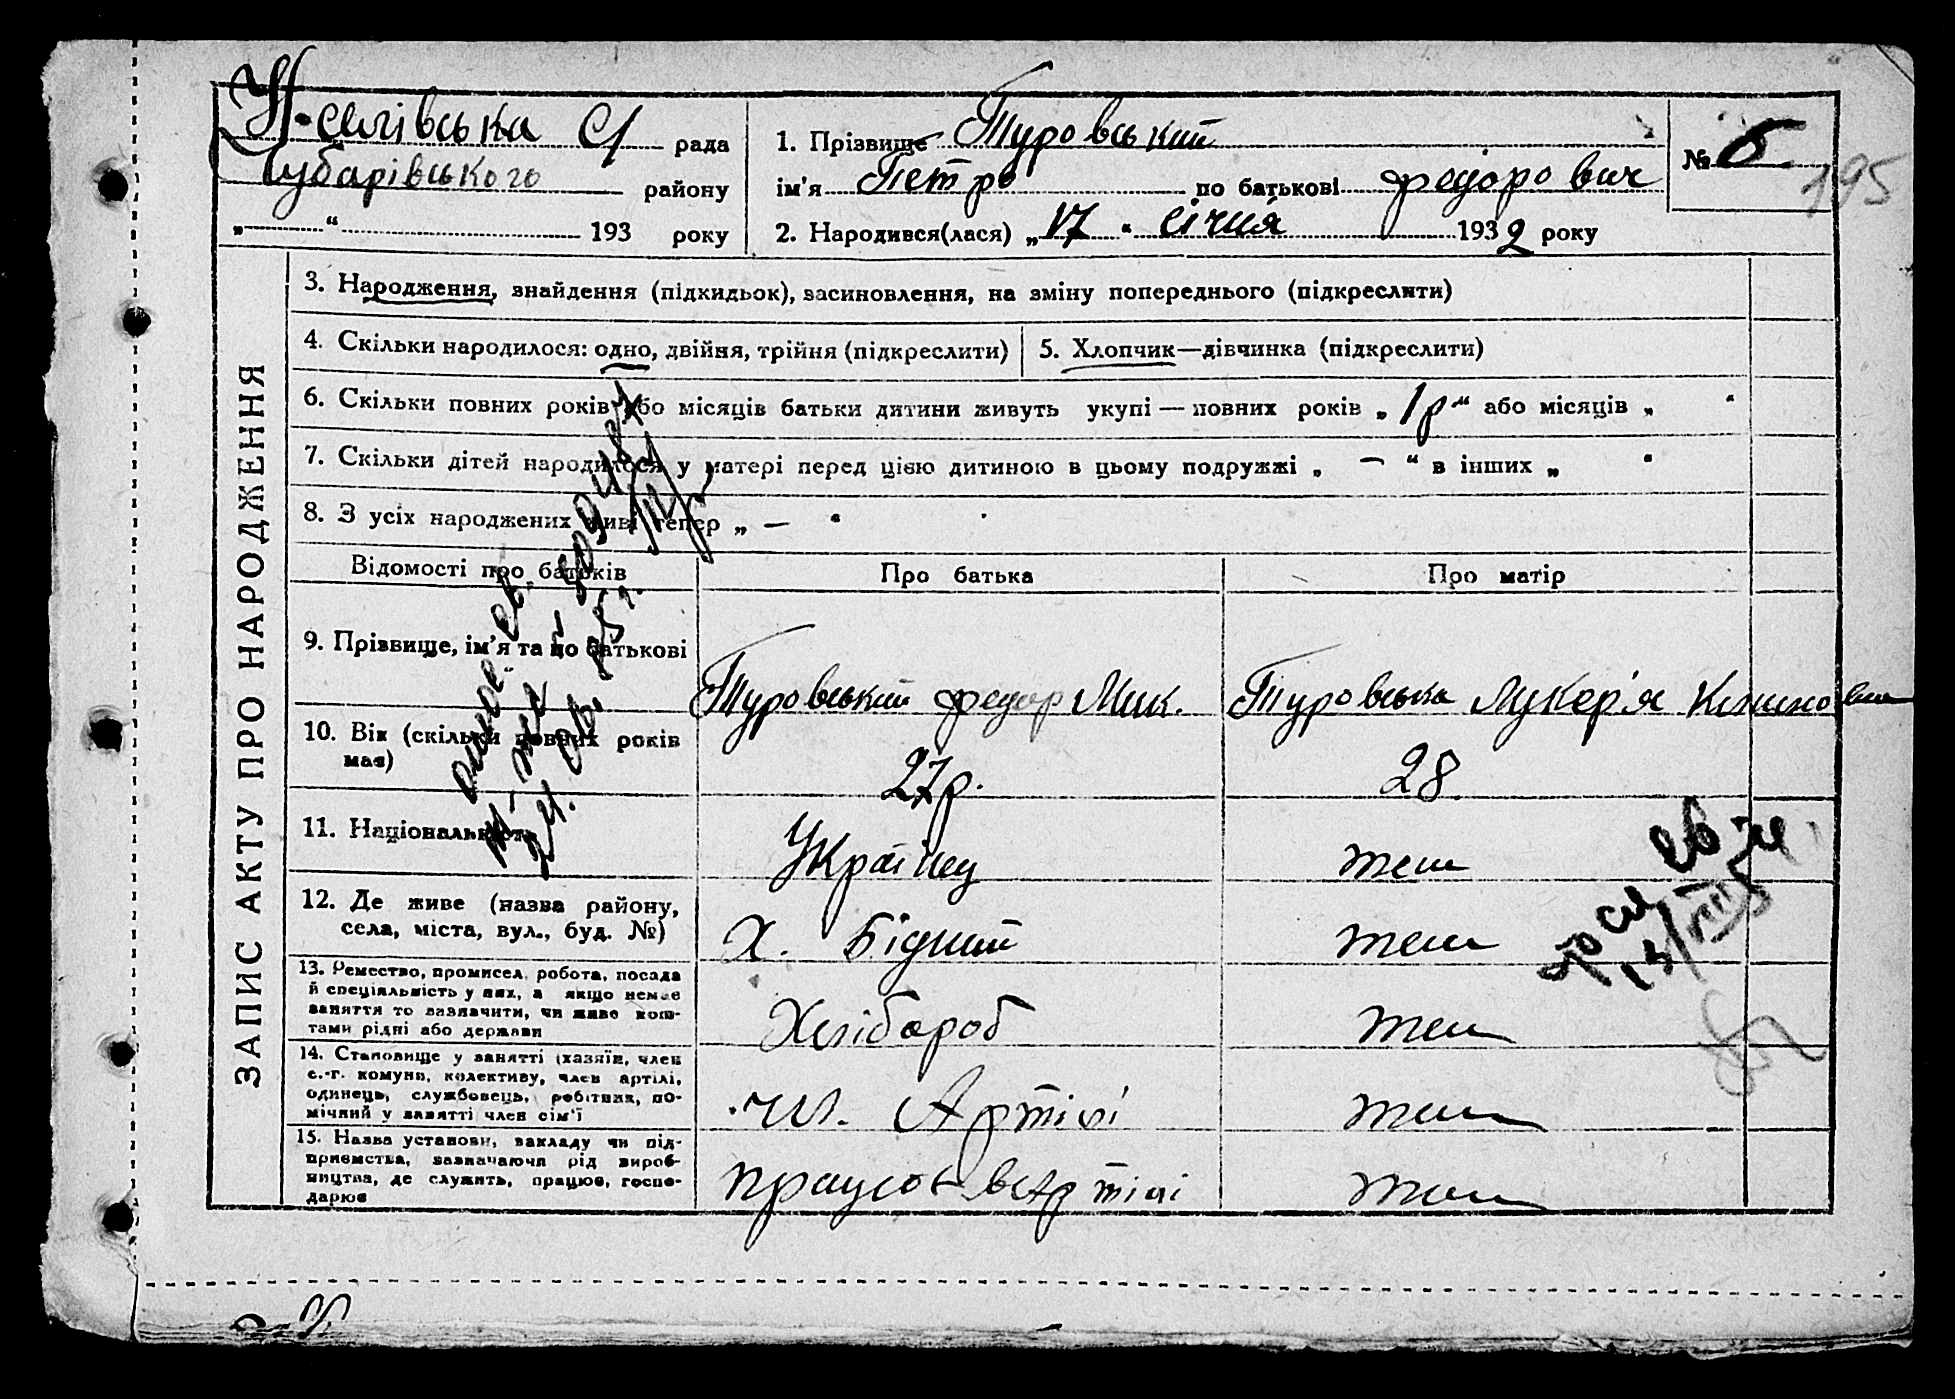 Н-селівська С/ рада
Чубарівського району
„ “ 193 року
1. Прізвище Туровський
ім’я Петро по батькові Федорович
2. Народився(лася) „17“ січня 1932 року
№ 6
195
ЗАПИС АКТУ ПРО НАРОДЖЕННЯ
3. Народження, знайдення (підкидьок), засиновлення, на зміну попереднього (підкреслити)
4. Скільки народилося: одно, двійня, трійня (підкреслити)
5. Хлопчик—дівчинка (підкреслити)
6. Скільки повних років або місяців батьки дитини живуть укупі — повних років „1р“ або місяців „ “
7. Скільки дітей народилося у матері перед цією дитиною в цьому подружжі „ — “ в інших „ “
8. З усіх народжених живі тепер „ — “
Відомості про батьків
Про батька
Про матір
9. Прізвище, ім’я та по батькові
Туровський Федор Мик.
Туровська Лукер'я
10. Вік (скільки повних років
має)
27р.
28
11. Національність
Українец
теж
12. Де живе (назва району,
села, міста, вул., буд. №)
Х. Бідний
теж
13. Ремество, промисел, робота, посада
й спеціяльність у них, а якщо немає
заняття то зазначити, чи живе кош-
тами рідні або держави
Хлібороб
теж
14. Становище у занятті (хазяїн, член
с.-г. комуни, колективу, член артілі,
одинець, службовець, робітник, по-
мічний у занятті член сім’ї
чл. Артілі
теж
15. Назва установи, закладу чи під-
приємства, зазначаючи рід вироб-
ництва, де служить, працює, госпо-
дарює
працює в Артілі
теж